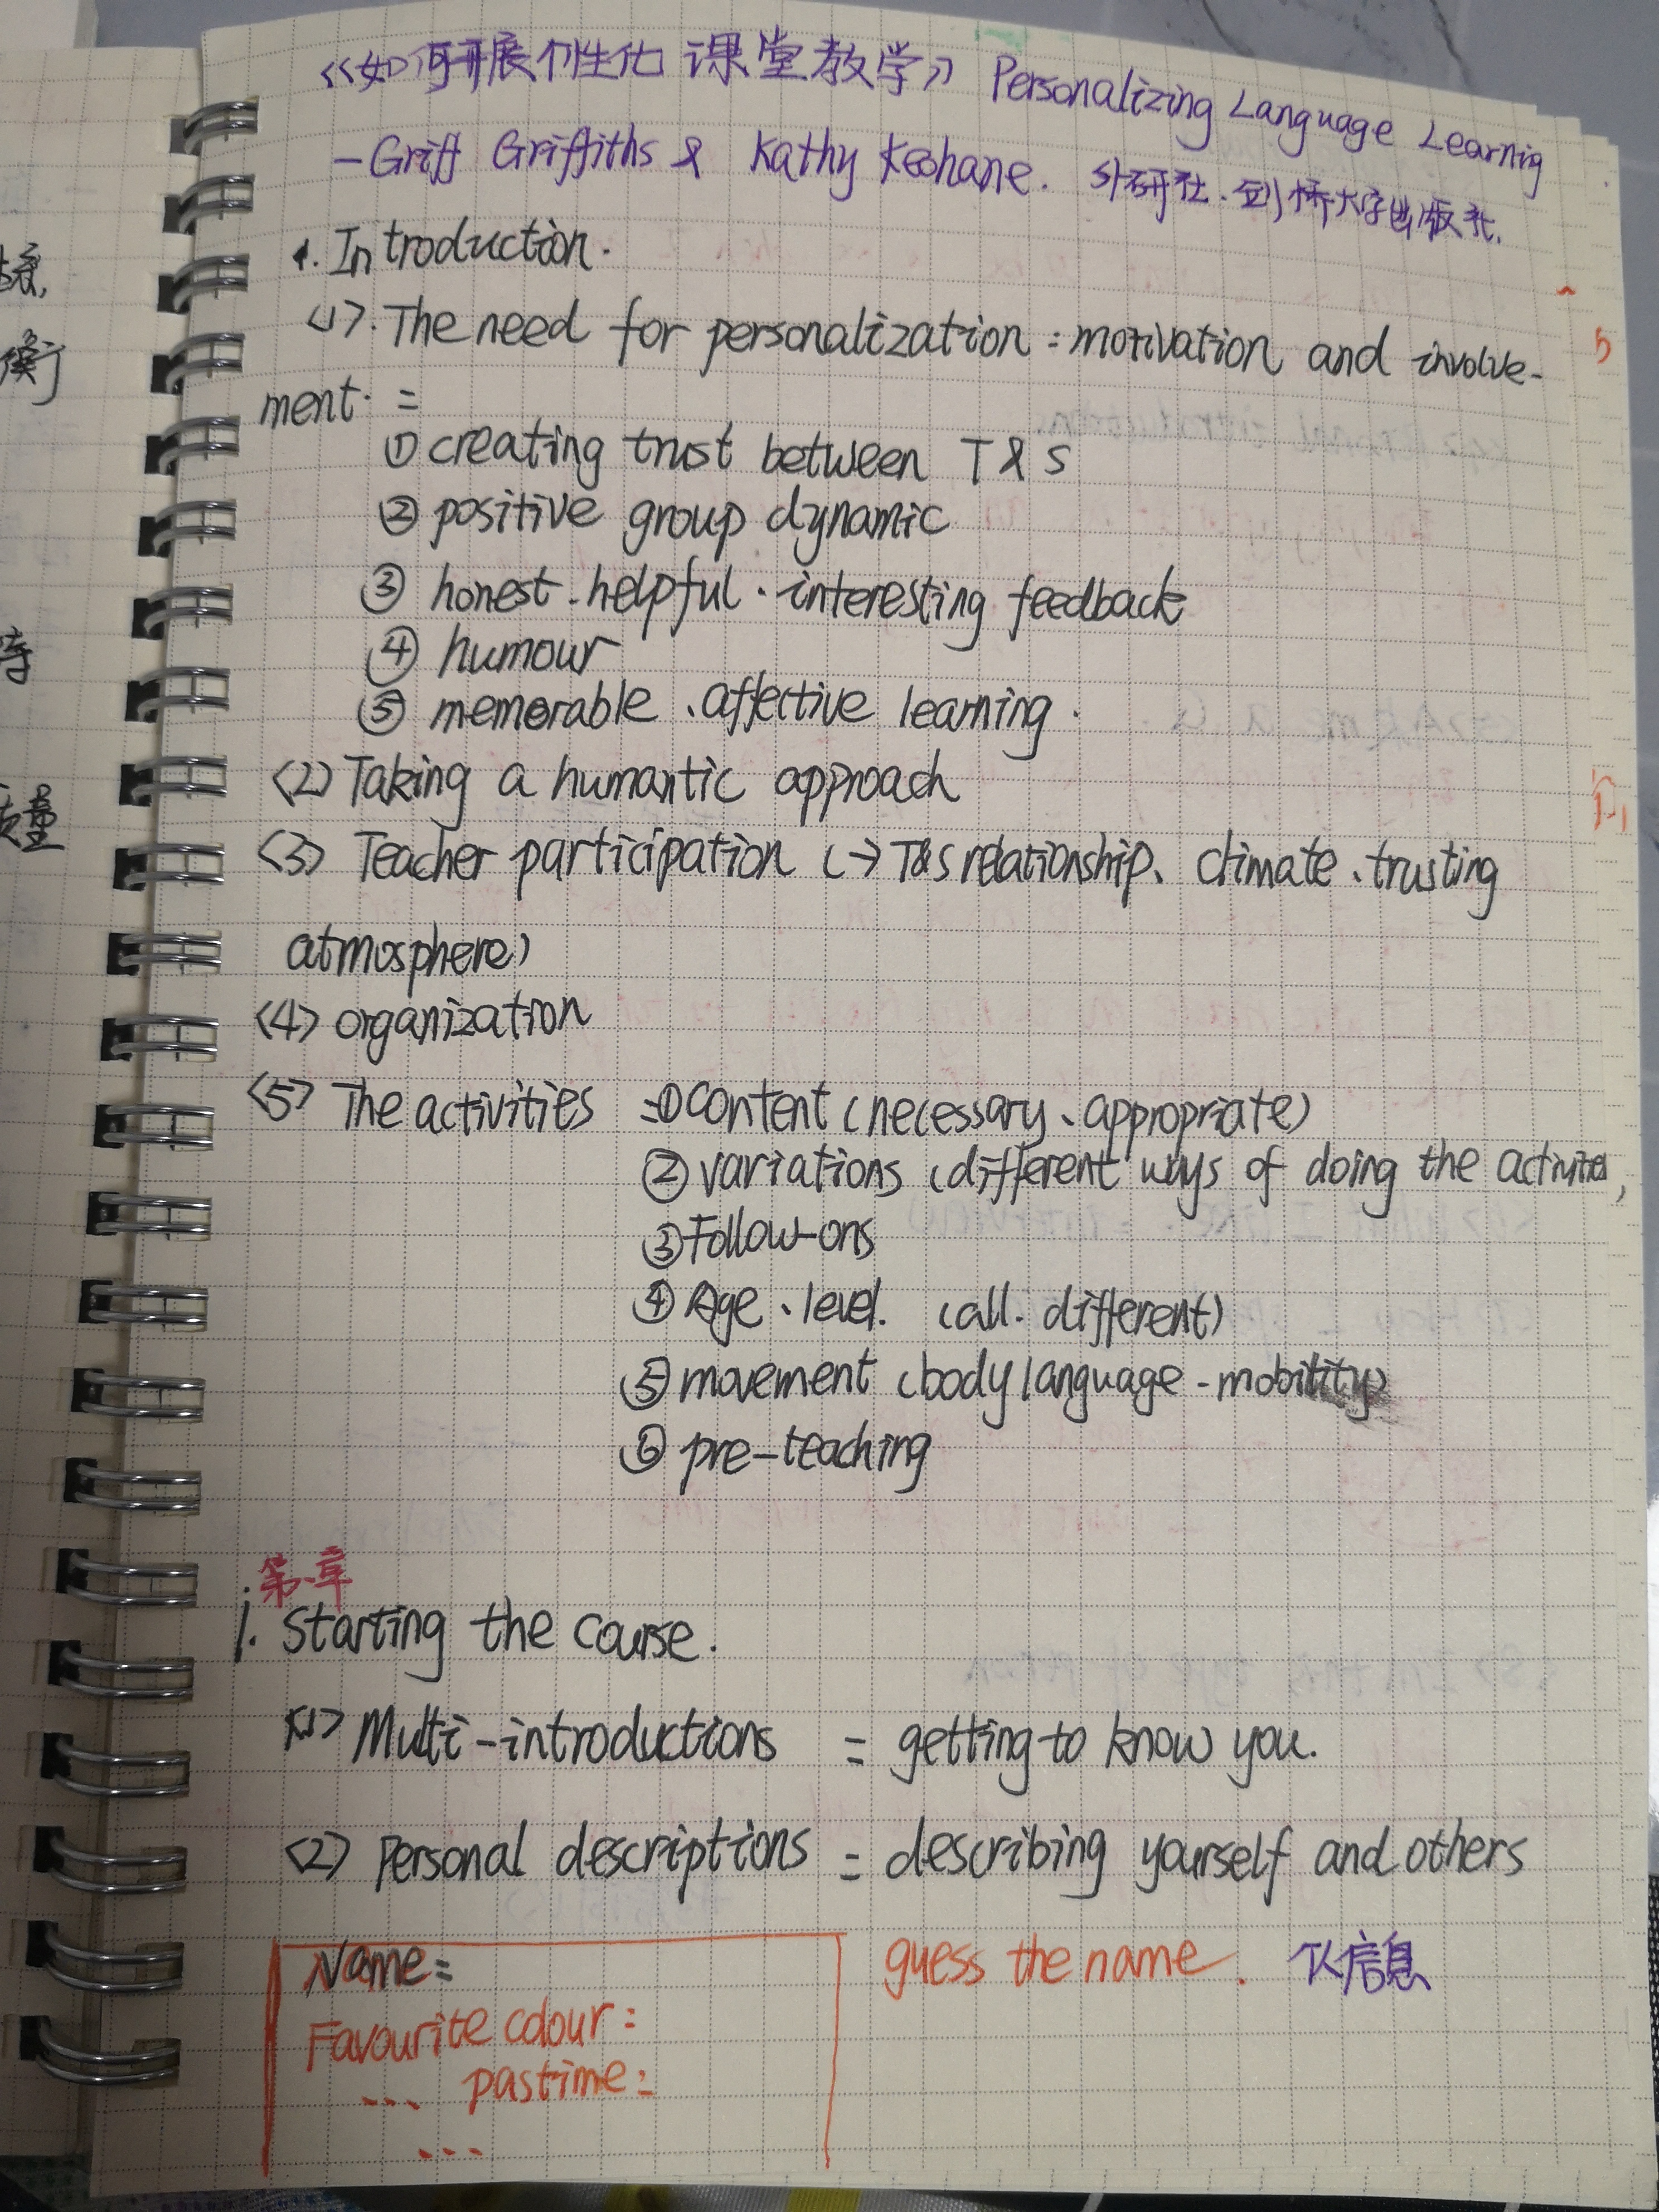 《如何开展个性化课堂教学》 Personalizing Language Learnig
-Griff Griffiths & Kathy Keohane. 外研社.剑桥大学出版社.
1. Introduction.
<1>. The need for personalization: motivation and involve-
ment. =
① creating trust between T & S
② positive group dynamic
③ honest.helpful.interesting feedback
④ humour
⑤ memorable、affective learning.
<2> Taking a humantic approach
<3> Teacher participation (→ T&S relationship、climate、trusting
atmosphere)
<4> organization
<5> The activities =① content (necessary、appropriate)
② variations (different ways of doing the activities)
③ Follow-ons
④ Age、level. (all. different)
⑤ movement (body language - mobility)
⑥ pre-teaching
第一章
1. Starting the course.
<1> Multi-introductions = getting to know you.
<2> Personal descriptions = describing yourself and others
Name:
guess the name. 以信息
Favourite colour:
... pastime:
...
场景,
衡
待
质量
5